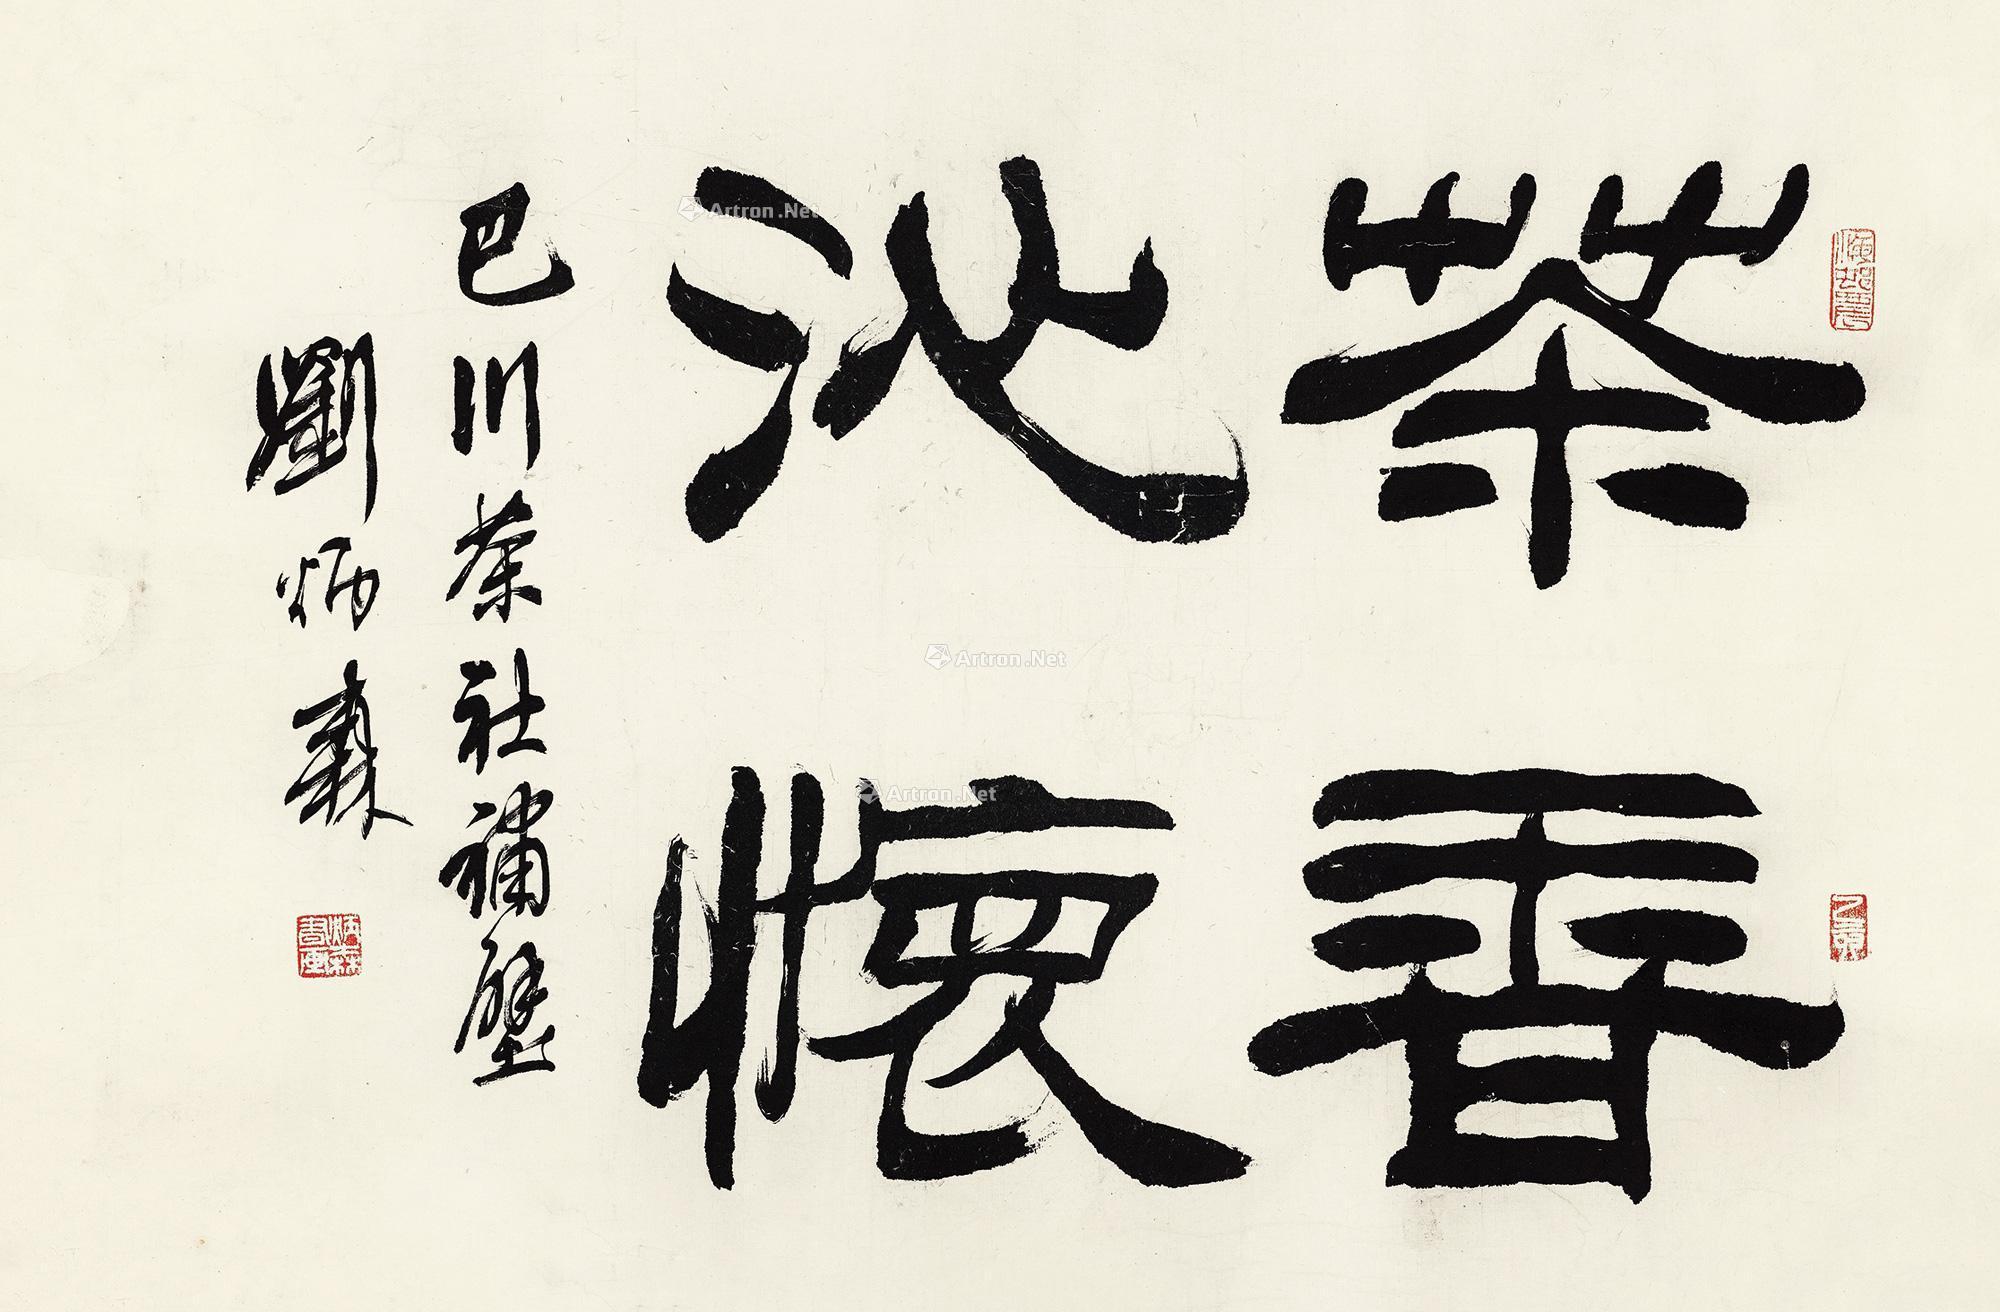 茶香
沁懷
巴川茶社補壁
劉炳森
炳森書画
Artron.Net
Artron.Net
Artron.Net